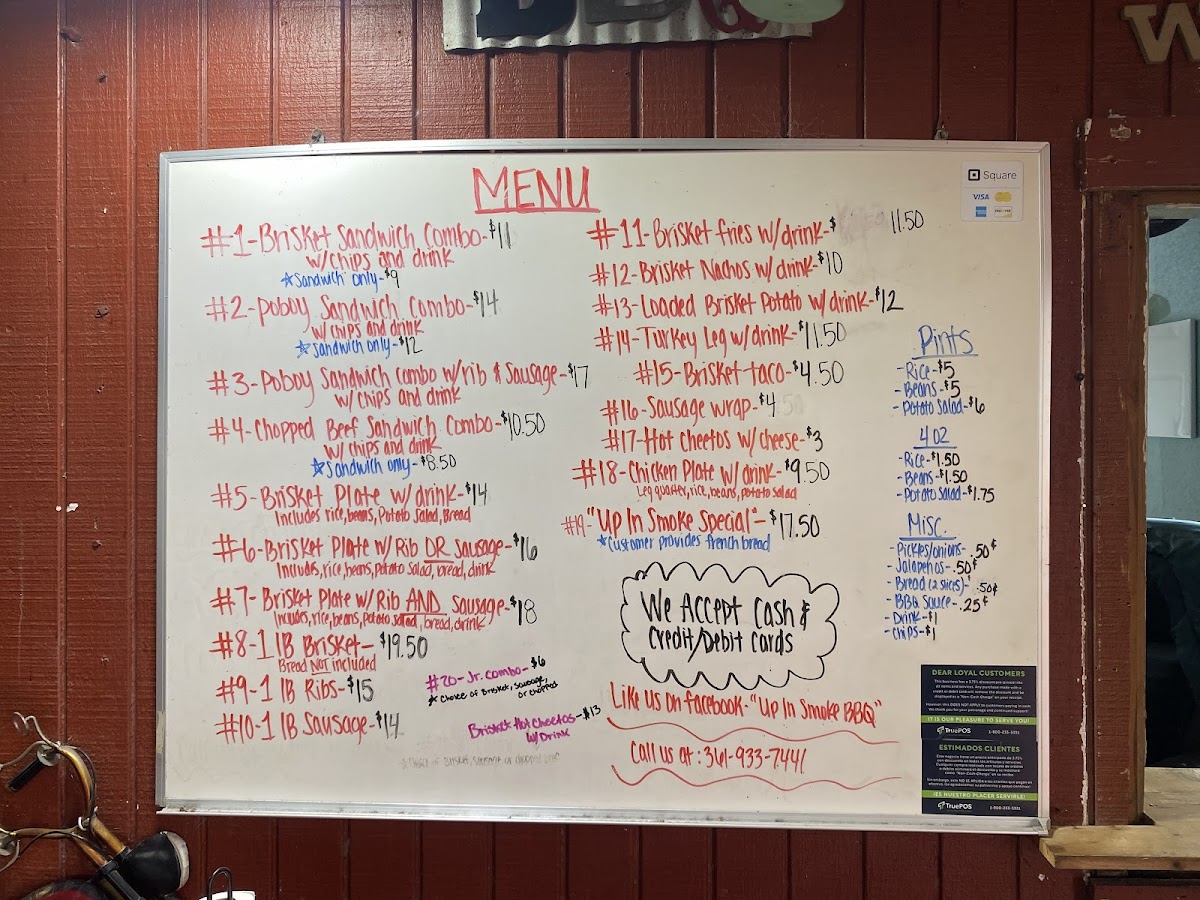 BBQ
W
MENU
#1-Brisket Sandwich Combo-$11
w/chips and drink
☆Sandwich only-$9
#2-Poboy Sandwich Combo-$14
w/ chips and drink
☆Sandwich only-$12
#3-Poboy Sandwich Combo w/rib & Sausage-$17
w/ chips and drink
#4-Chopped Beef Sandwich Combo-$10.50
w/ chips and drink
☆Sandwich only-$8.50
#5-Brisket Plate w/drink-$14
Includes rice, beans, Potato Salad, Bread
#6-Brisket Plate w/Rib OR Sausage-$16
Includes, rice, beans, potato salad, bread, drink
#7-Brisket Plate w/Rib AND Sausage-$18
Includes, rice, beans, potato salad, bread, drink
#8-1 lB Brisket-$19.50
Bread NOT included
#9-1 lB Ribs-$15
#10-1 lB Sausage-$14
#20-Jr. Combo-$6
☆ Choice of Brisket, Sausage,
or chopped
Brisket Hot Cheetos-$13
w/Drink
#11-Brisket fries w/drink-$11.50
#12-Brisket Nachos w/drink-$10
#13-Loaded Brisket Potato w/drink-$12
#14-Turkey Leg w/drink-$11.50
#15-Brisket taco-$4.50
#16-Sausage wrap-$4
#17-Hot Cheetos w/cheese-$3
#18-Chicken Plate w/drink-$9.50
Leg quarter, rice, beans, potato salad
#19-"Up In Smoke Special"-$17.50
☆Customer provides french bread
We Accept Cash &
Credit/Debit Cards
Like us on facebook-"Up In Smoke BBQ"
Call us at: 361-933-7441
Square
VISA
Pints
-Rice-$5
-Beans-$5
-Potato Salad-$6
4 oz
-Rice-$1.50
-Beans-$1.50
-Potato Salad-$1.75
Misc.
-Pickles/onions-.50¢
-Jalapeños-.50¢
-Bread (2 slices)-.50¢
-BBQ Sauce-.25¢
-Drink-$1
-Chips-$1
DEAR LOYAL CUSTOMERS
IT IS OUR PLEASURE TO SERVE YOU!
TruePOS
ESTIMADOS CLIENTES
¡ES NUESTRO PLACER SERVIRLE!
TruePOS